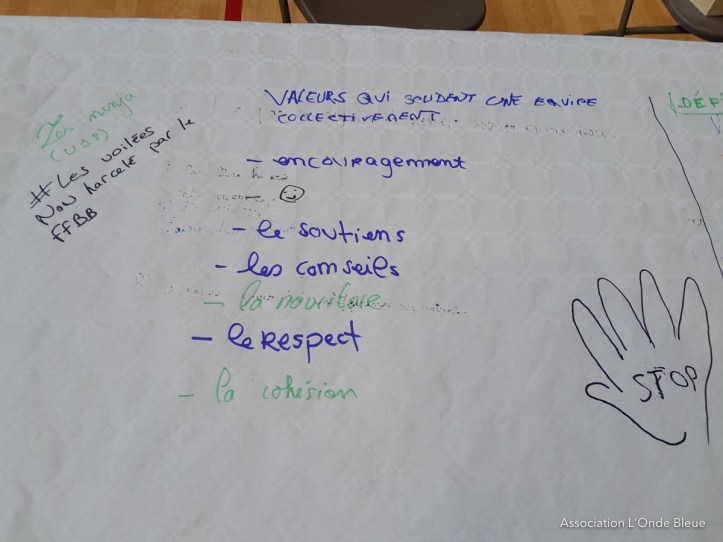 Les ninja
(U18)
#Les voilées
Non harcelé par le
FFBB
VALEURS QUI SOUDENT UNE EQUIPE
COLLECTIVEMENT.
- encouragement
- ☺
- le soutiens
- les comseils
- la nouriture
- le respect
- la cohésion
DÉF
STOP
Association L'Onde Bleue